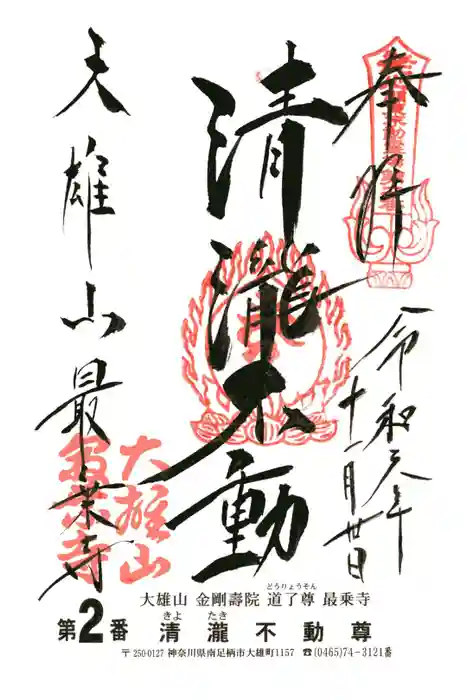 奉拝
令和元年
十一月廿日
清瀧不動
大雄山最乗寺
大雄山
最乗寺
大雄山 金剛壽院 道了尊 最乗寺
どうりょうそん
第2番 清瀧不動尊
きよ たき
〒250-0127 神奈川県南足柄市大雄町1157 ☎(0465)74-3121番